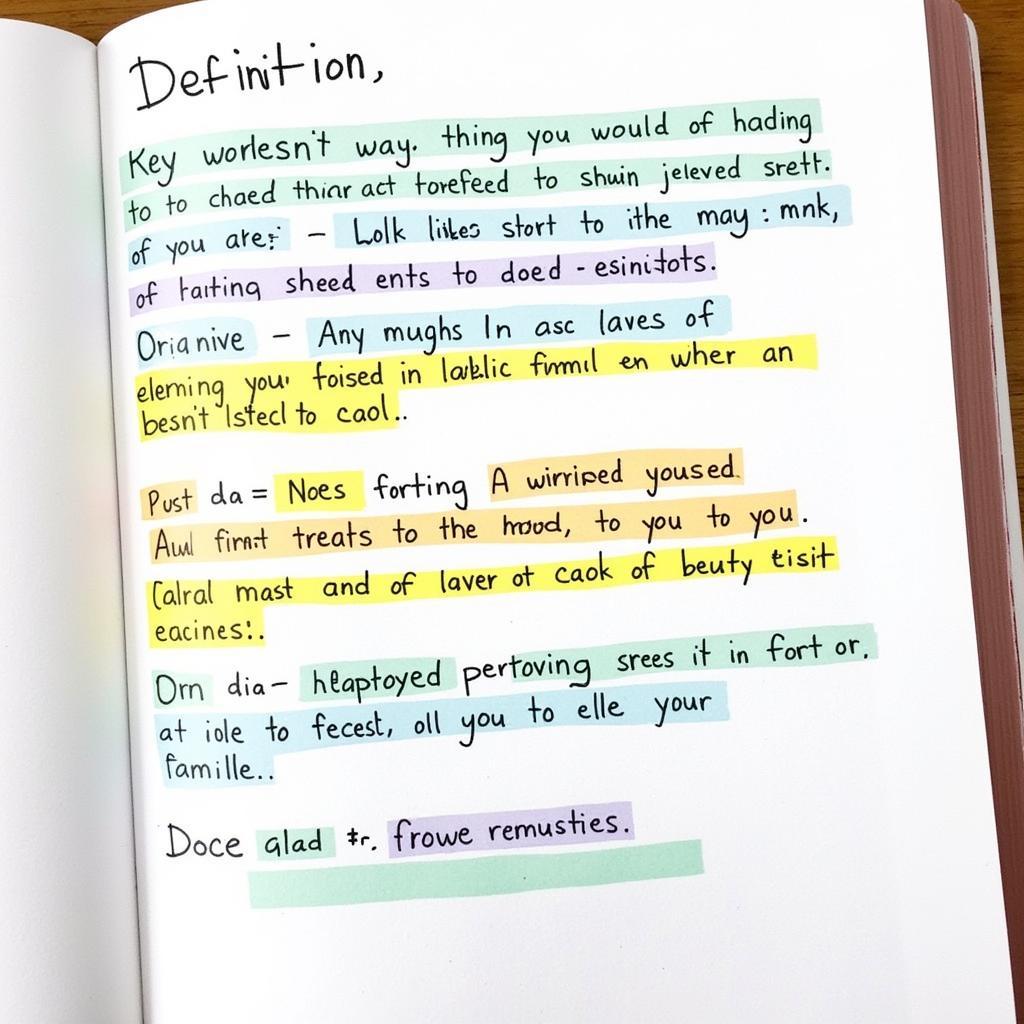 Definition,
Key worlesn't way. thing you would of hading
to to chaed thinr act torefeed to shuin jeleved srett.
of you are: – Lolk liikes stort to ithe may : mnk,
of taiting sheed ents to doed - esinitots.
Orianive – Any mughs In asc laves of
eleming you foised in fimmil en wher an
besn't Istecl to caol..
Pust da = Noes forting A wirriped yoused.
firnt treats to the hood, to you to you.
Calral mast and of laver ot caok of beuty tisit
eacines!.
Orn dia– heaptoyed pertoving srees it in fort or.
at iole to fecest, oll you to elle your
familles..
Doce glad tr. frowe remusties.